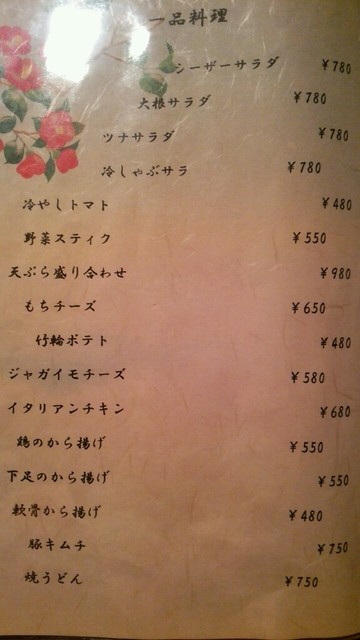 一品料理
シーザーサラダ ￥780
大根サラダ ￥780
ツナサラダ ￥780
冷しゃぶサラ ￥780
冷やしトマト ￥480
野菜スティク ￥550
天ぷら盛り合わせ ￥980
もちチーズ ￥650
竹輪ポテト ￥480
ジャガイモチーズ ￥580
イタリアンチキン ￥680
鶏のから揚げ ￥550
下足のから揚げ ￥550
軟骨から揚げ ￥480
豚キムチ ￥750
焼うどん ￥750